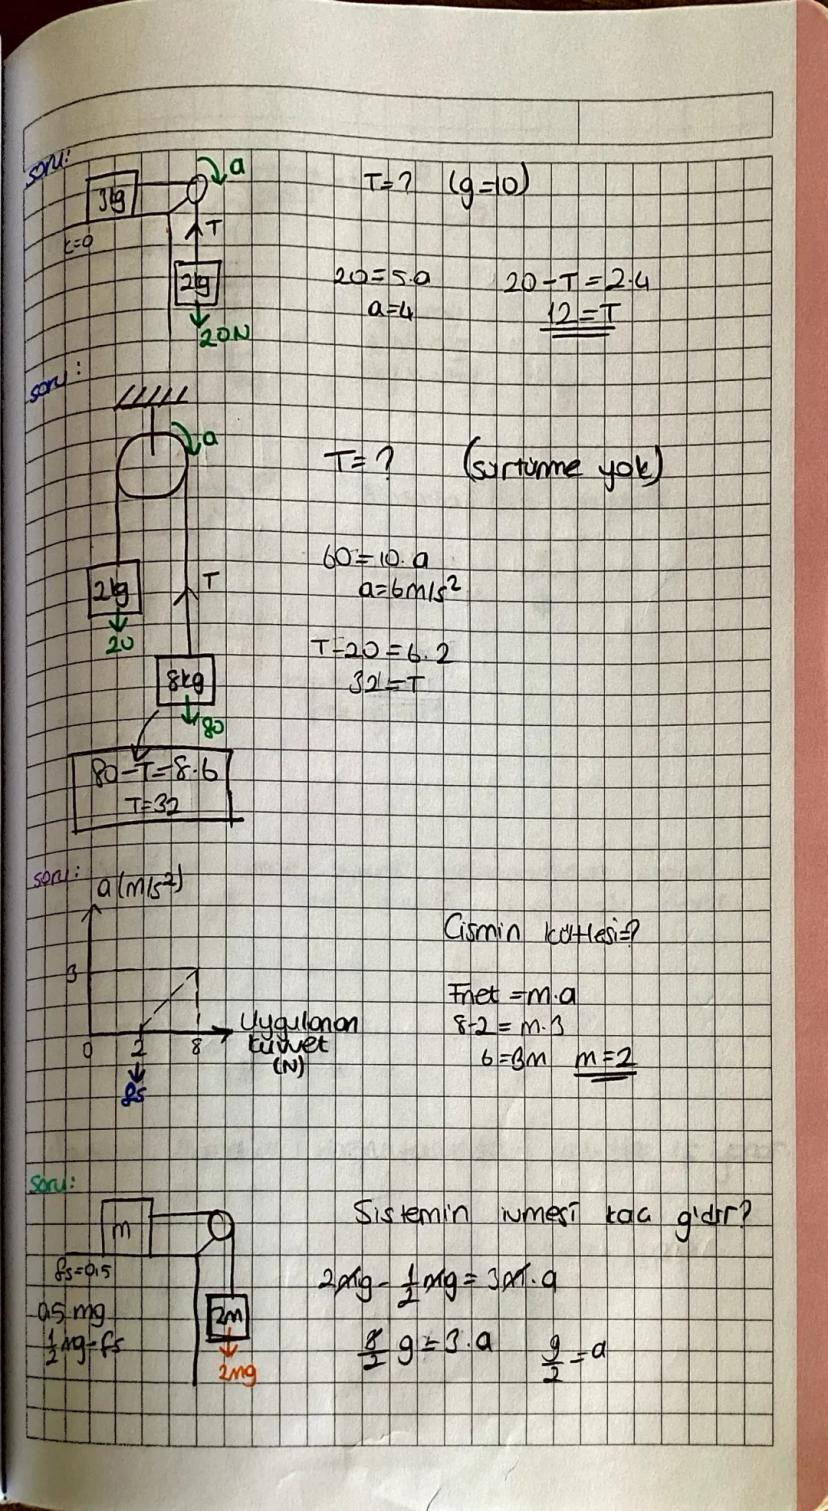 soru:
a
T=? (g=10)
3kg
k=0
T
2kg
20N
20=5.a 20-T=2.4
a=4 12=T
soru:
a
T=? (sürtünme yok)
60=10.a
a=6m/s²
2kg
T
20
T-20=6.2
32=T
8kg
80
80-T=8.6
T=32
soru:
a(m/s²)
Cismin kütlesi=?
3
Fnet=m.a
8-2=m.3
6=3m m=2
0 2 8
Uygulanan
kuvvet
(N)
fs
soru:
Sistemin ivmesi kaç g'dir?
m
fs=0,5
2mg-1/2mg=3m.a
0,5 mg
1/2mg=fs
2m
2mg
g=3.a g/2=a